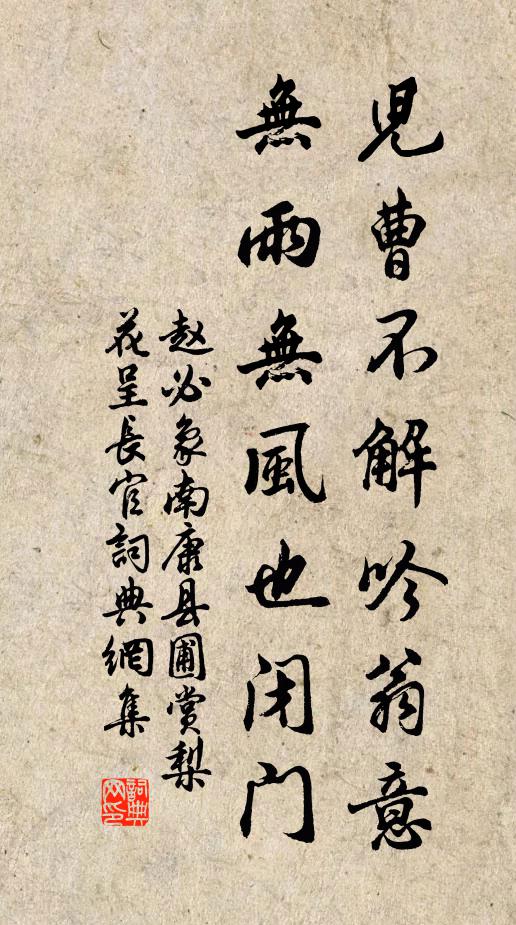 児曹不解吟翁意
無雨無風也闭门
赵必象南康县圃赏梨
花呈長官詞典網集
詞典
网印